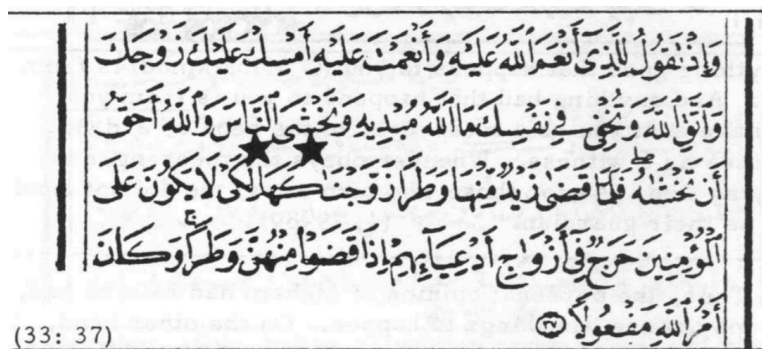 وَإِذْ تَقُولُ لِلَّذِي أَنْعَمَ اللَّهُ عَلَيْهِ وَأَنْعَمْتَ عَلَيْهِ أَمْسِكْ عَلَيْكَ زَوْجَكَ
وَاتَّقِ اللَّهَ وَتُخْفِي فِي نَفْسِكَ مَا اللَّهُ مُبْدِيهِ وَتَخْشَى النَّاسَ وَاللَّهُ أَحَقُّ
أَنْ تَخْشَاهُ فَلَمَّا قَضَى زَيْدٌ مِنْهَا وَطَرًا زَوَّجْنَاكَهَا لِكَيْ لَا يَكُونَ عَلَى
الْمُؤْمِنِينَ حَرَجٌ فِي أَزْوَاجِ أَدْعِيَائِهِمْ إِذَا قَضَوْا مِنْهُنَّ وَطَرًا وَكَانَ
أَمْرُ اللَّهِ مَفْعُولًا ٣٧
(33: 37)